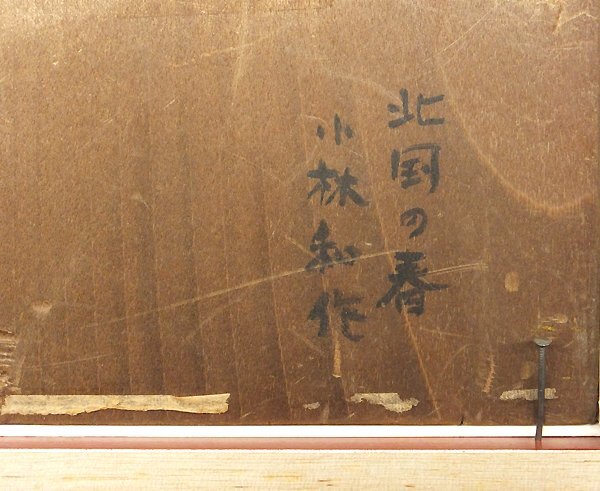 北国の春
小林和作